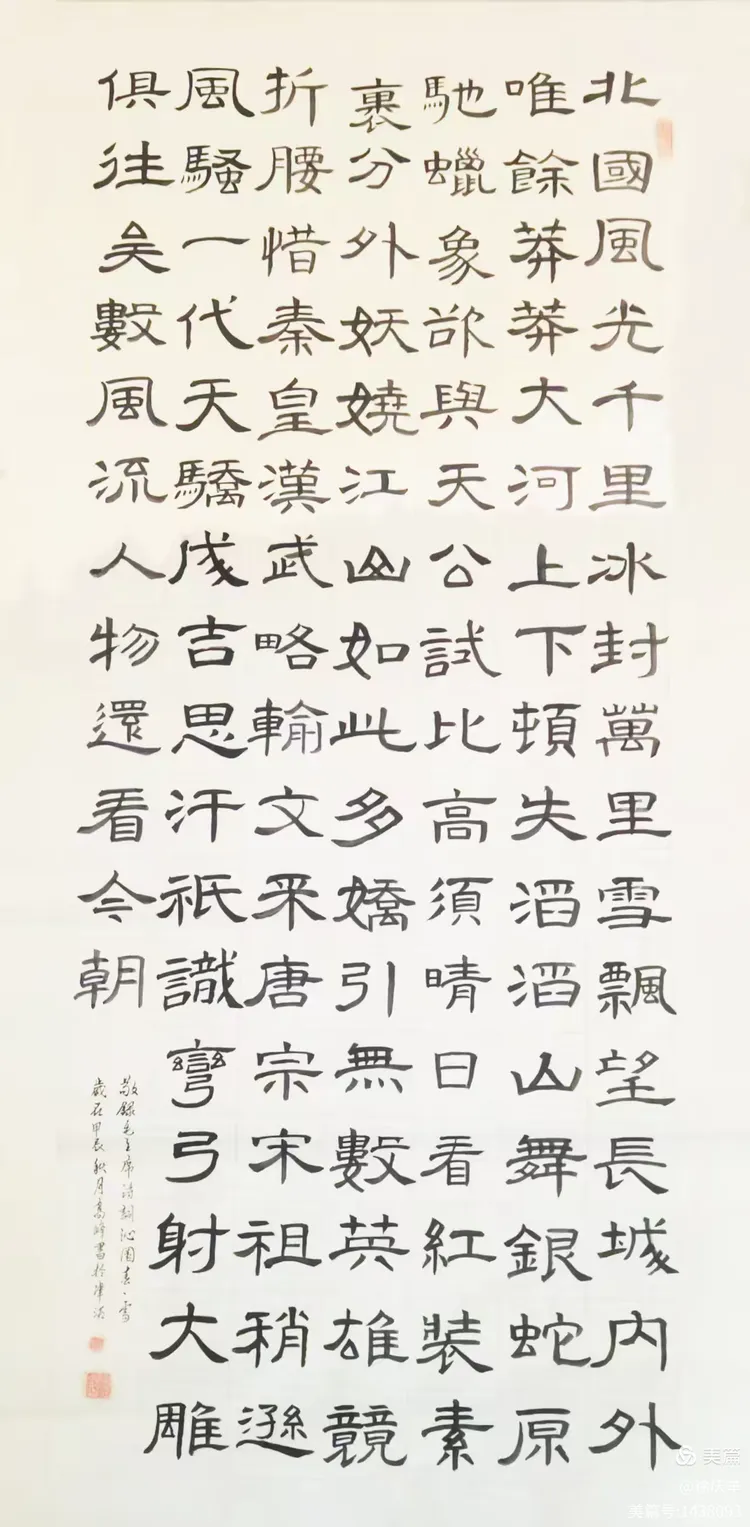 北國風光千里冰封萬里雪飄望長城内外
唯餘莽莽大河上下頓失滔滔山舞銀蛇原
馳蠟象欲與天公試比高須晴日看紅裝素
裹分外妖嬈江山如此多嬌引無數英雄競
折腰惜秦皇漢武略輸文采唐宗宋祖稍遜
風騷一代天驕成吉思汗祇識彎弓射大雕
俱往矣數風流人物還看今朝
敬錄毛主席詩詞沁園春·雪
歲在甲辰秋月高峰書於津沽
美篇
美篇号:1438093